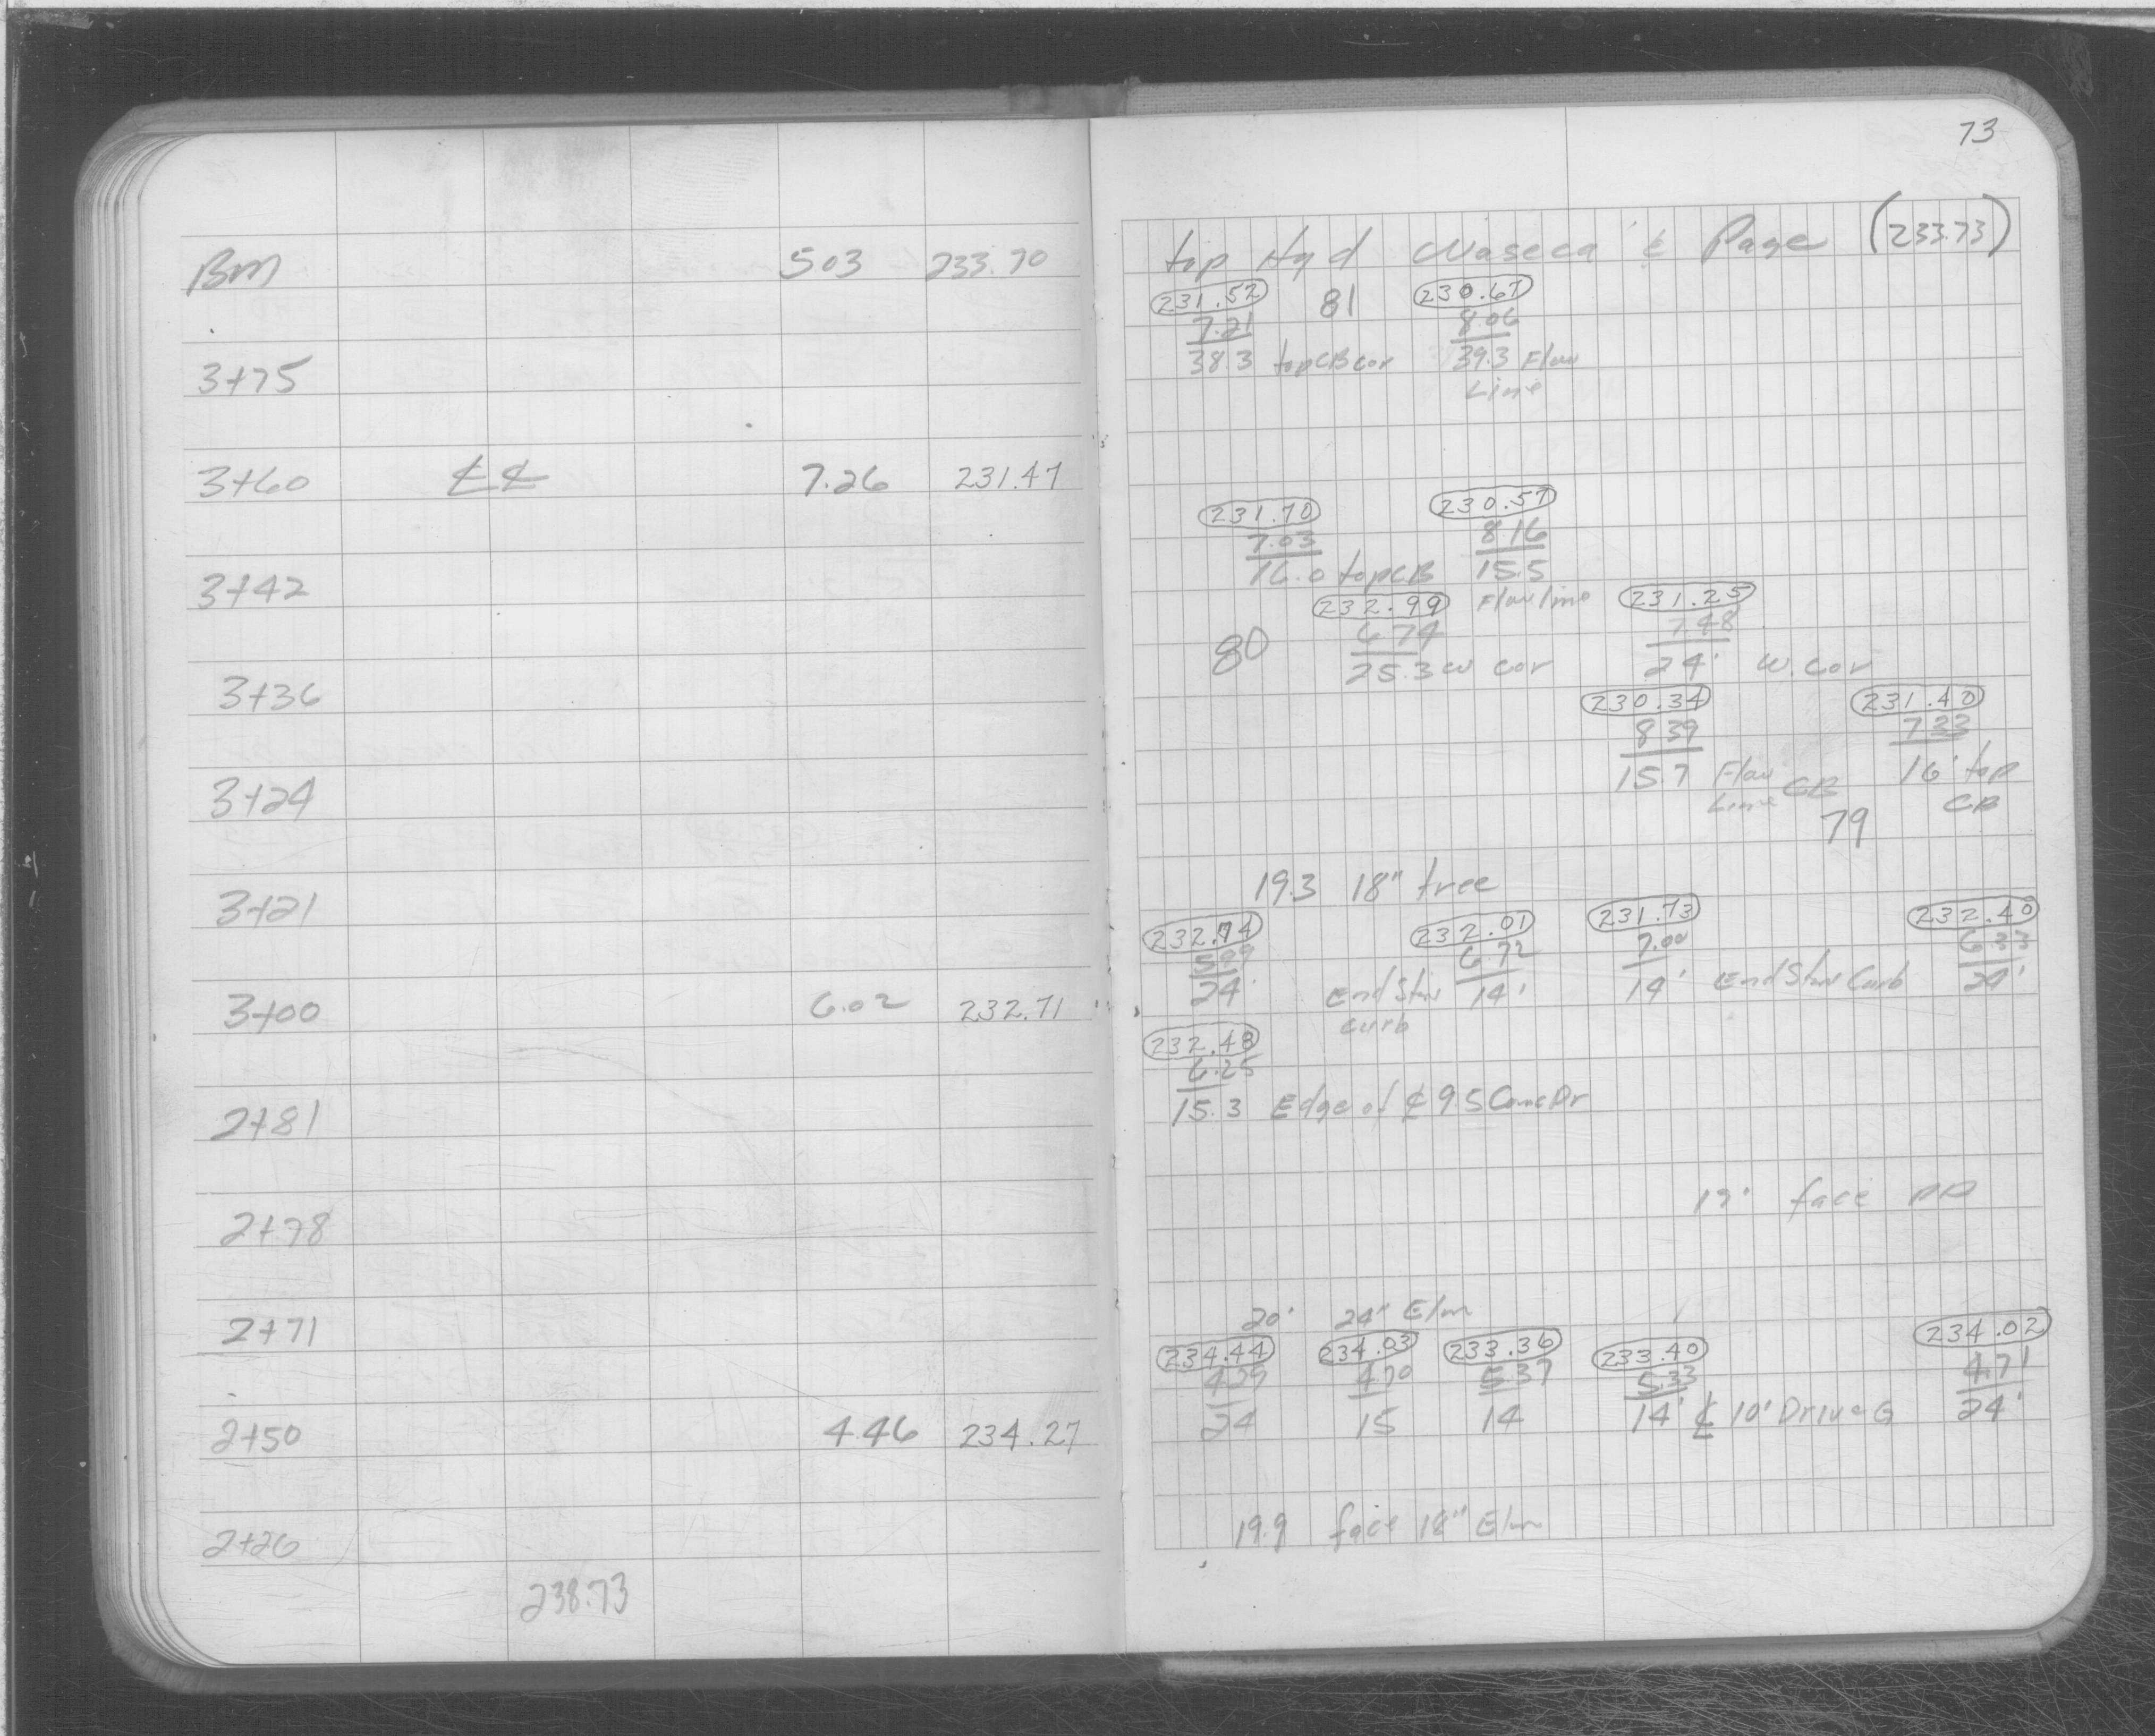 73
BM 503 233.70
top Hyd Waseca & Page (233.73)
231.52 81 230.67
7.21 8.06
3+75 38.3 top CB cor 39.3 Flow
Line
3+60 ⅊ ⅊ 7.26 231.47
231.70 230.57
7.03 8.16
3+42 16.0 top CB 15.5
Flow line
232.99 231.25
6.74 7.48
80 25.3 W cor 24' W. Cor
3+36
230.34 231.40
8.39 7.33
3+24 15.7 Flow Line CB 16' top
CB
79
3+21 19.3 18" tree
232.74 232.01 231.73 232.40
5.99 6.72 7.00 6.33
3+00 6.02 232.71 24' End Stw Curb 14' 14' End Stw Curb 24'
232.48
6.25
2+81 15.3 Edge of ⅊ 9.5 Conc Dr
2+78 face PP
2+71 20' 24" Elm
234.44 234.03 233.36 233.40 234.02
4.29 4.70 5.37 5.33 4.71
2+50 4.46 234.27 24 15 14 14' ⅊ 10' Drive G 24'
2+26 19.9 face 18" Elm
238.73